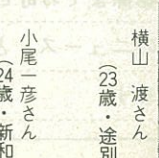 横山 渡さん
(23歳・途別
小尾一彦さん
(24歳・新和